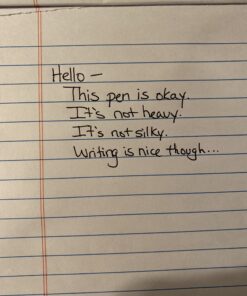 Hello –
This pen is okay.
It's not heavy.
It's not silky.
Writing is nice though...